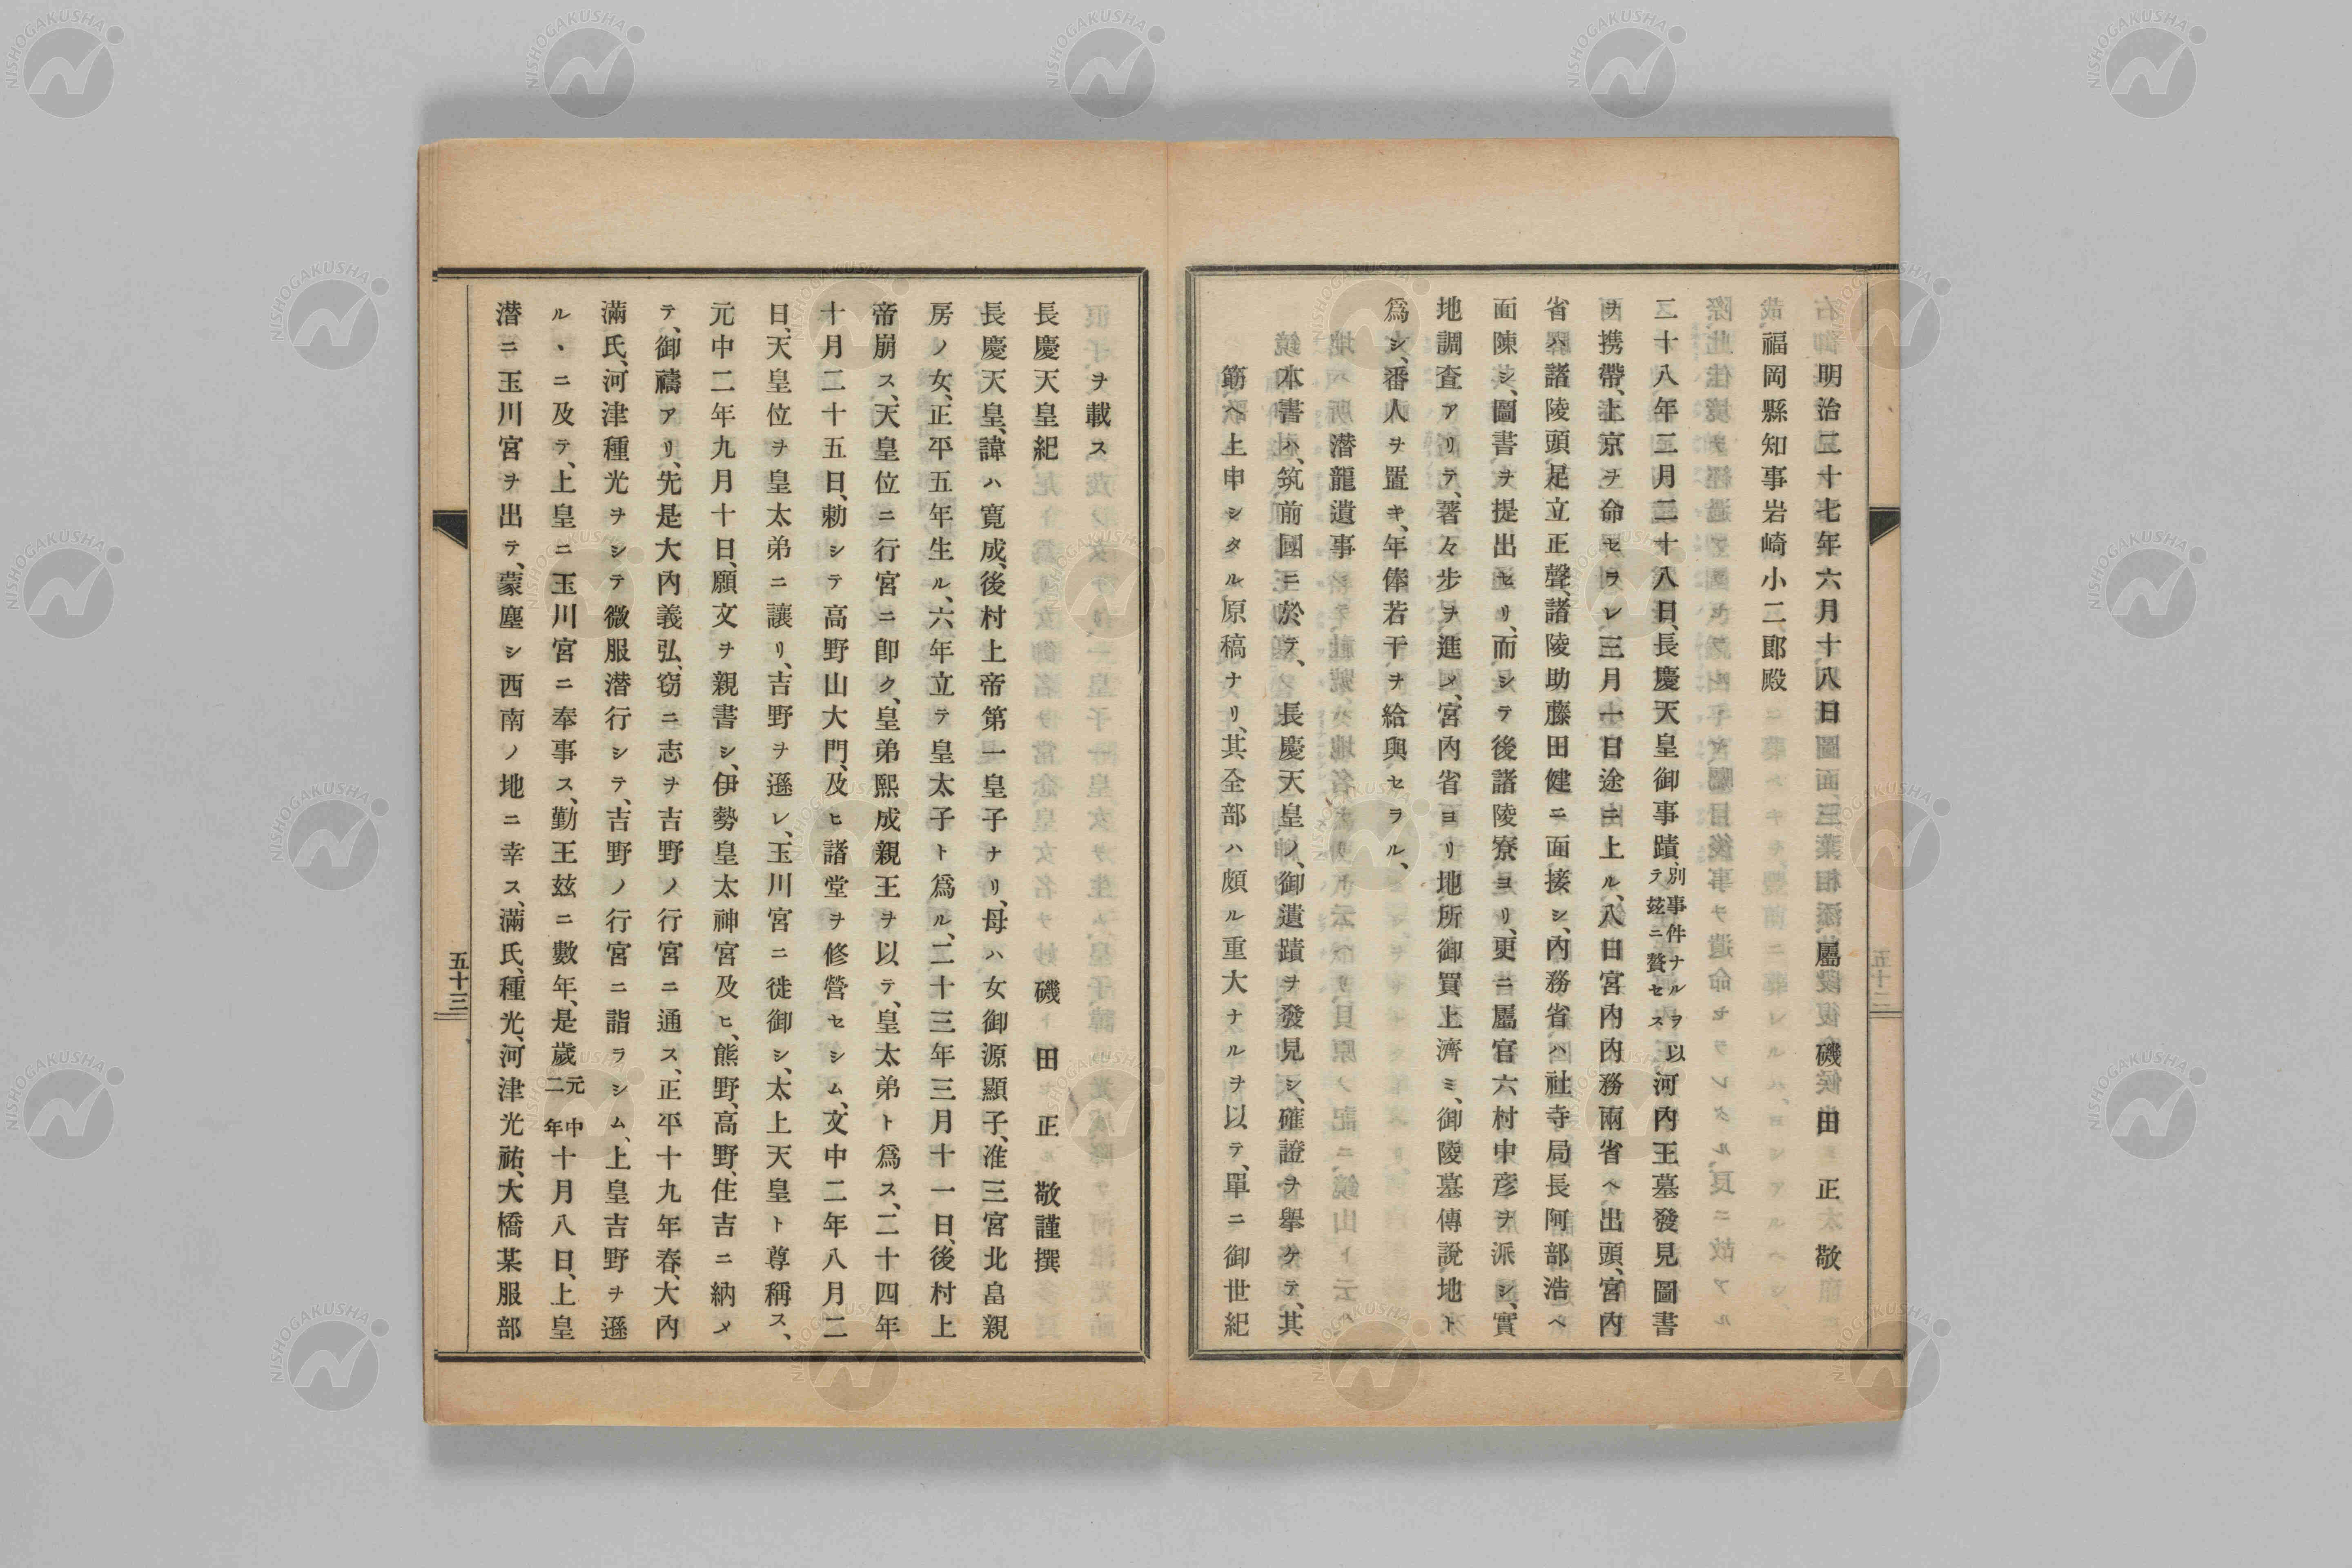 明治三十七年六月十八日 屬 磯田正敬
福岡縣知事岩崎小二郎殿
二十八年三月二十八日、長慶天皇御事蹟、別事件ナルヲ以テ玆ニ贅セス河內王墓發見圖書
ヲ携帶、上京ヲ命セラレ、三月一日途ニ上ル、八日宮內內務兩省ヘ出頭、宮內
省ハ諸陵頭足立正聲、諸陵助藤田健ニ面接シ、內務省ハ社寺局長阿部浩ヘ
面陳シ、圖書ヲ提出セリ、而シテ後諸陵寮ヨリ、更ニ屬官六村中彥ヲ派シ、實
地調查アリテ、著々步ヲ進メ、宮內省ヨリ地所御買上濟ミ、御陵墓傳說地ト
爲シ、番人ヲ置キ、年俸若干ヲ給與セラル、
潜龍遺事
本書ハ、筑前國ニ於テ、長慶天皇ノ、御遺蹟ヲ發見シ、確證ヲ擧ケテ、其
筋ヘ上申シタル原稿ナリ、其全部ハ頗ル重大ナルヲ以テ、單ニ御世紀
ヲ載ス
長慶天皇紀 磯田正敬謹撰
長慶天皇、諱ハ寬成、後村上帝第一皇子ナリ、母ハ女御源顯子、准三宮北畠親
房ノ女、正平五年生ル、六年立テ皇太子ト爲ル、二十三年三月十一日、後村上
帝崩ス、天皇位ニ行宮ニ卽ク、皇弟熙成親王ヲ以テ、皇太弟ト爲ス、二十四年
十月二十五日、勅シテ高野山大門、及ヒ諸堂ヲ修營セシム、文中二年八月二
日、天皇位ヲ皇太弟ニ讓リ、吉野ヲ遜レ、玉川宮ニ徙御シ、太上天皇ト尊稱ス、
元中二年九月十日、願文ヲ親書シ、伊勢皇太神宮及ヒ、熊野、高野、住吉ニ納メ
テ、御禱アリ、先是大內義弘、窃ニ志ヲ吉野ノ行宮ニ通ス、正平十九年春、大內
滿氏、河津種光ヲシテ微服潜行シテ、吉野ノ行宮ニ詣ラシム、上皇吉野ヲ遜
ル、ニ及テ、上皇ニ玉川宮ニ奉事ス、勤王玆ニ數年、是歲元中二年十月八日、上皇
潜ニ玉川宮ヲ出テ、蒙塵シ西南ノ地ニ幸ス、滿氏、種光、河津光祐、大橋某服部
五十三